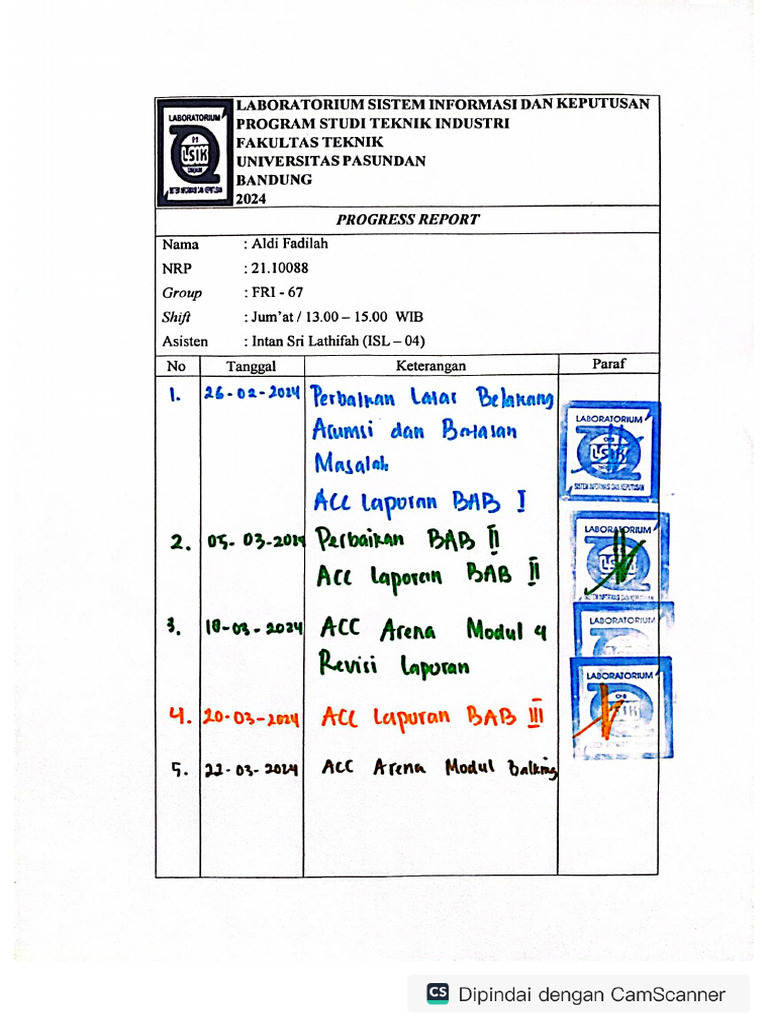 LABORATORIUM SISTEM INFORMASI DAN KEPUTUSAN
PROGRAM STUDI TEKNIK INDUSTRI
FAKULTAS TEKNIK
UNIVERSITAS PASUNDAN
BANDUNG
2024
LABORATORIUM
LSIK
SISTEM INFORMASI DAN KEPUTUSAN
PROGRESS REPORT
Nama : Aldi Fadilah
NRP : 21.10088
Group : FRI - 67
Shift : Jum'at / 13.00 – 15.00 WIB
Asisten : Intan Sri Lathifah (ISL – 04)
No Tanggal Keterangan Paraf
1. 26-02-2024 Perbaikan Latar Belakang
Asumsi dan Batasan
Masalah
ACC Laporan BAB I
LABORATORIUM
LSIK
SISTEM INFORMASI DAN KEPUTUSAN
2. 05-03-2024 Perbaikan BAB II
Acc Laporan BAB II
LABORATORIUM
SISTEM INFORMASI DAN KEPUTUSAN
3. 18-03-2024 ACC Arena Modul 4
Revisi Laporan
LABORATORIUM
4. 20-03-2024 ACC Laporan BAB III
LABORATORIUM
5. 22-03-2024 ACC Arena Modul
CS Dipindai dengan CamScanner